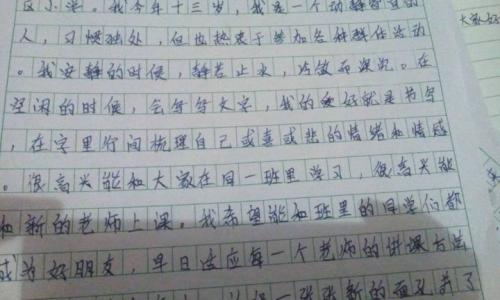 区小学。我今年十三岁，我是一个动静皆宜的
人，习惯独处，但也热衷于参加各种群体活动
。我安静的时候，静若止水，冷傲而深沉。在
空闲的时候，会写写文字，我的爱好就是书写
，在字里行间梳理自己或喜或悲的情绪和情感
。很高兴能和大家在同一班里学习，很高兴能
和新的老师上课。我希望能和班里的同学们都
成为好朋友，早日适应每一个老师的讲课方法
一张张新的面孔
大家好